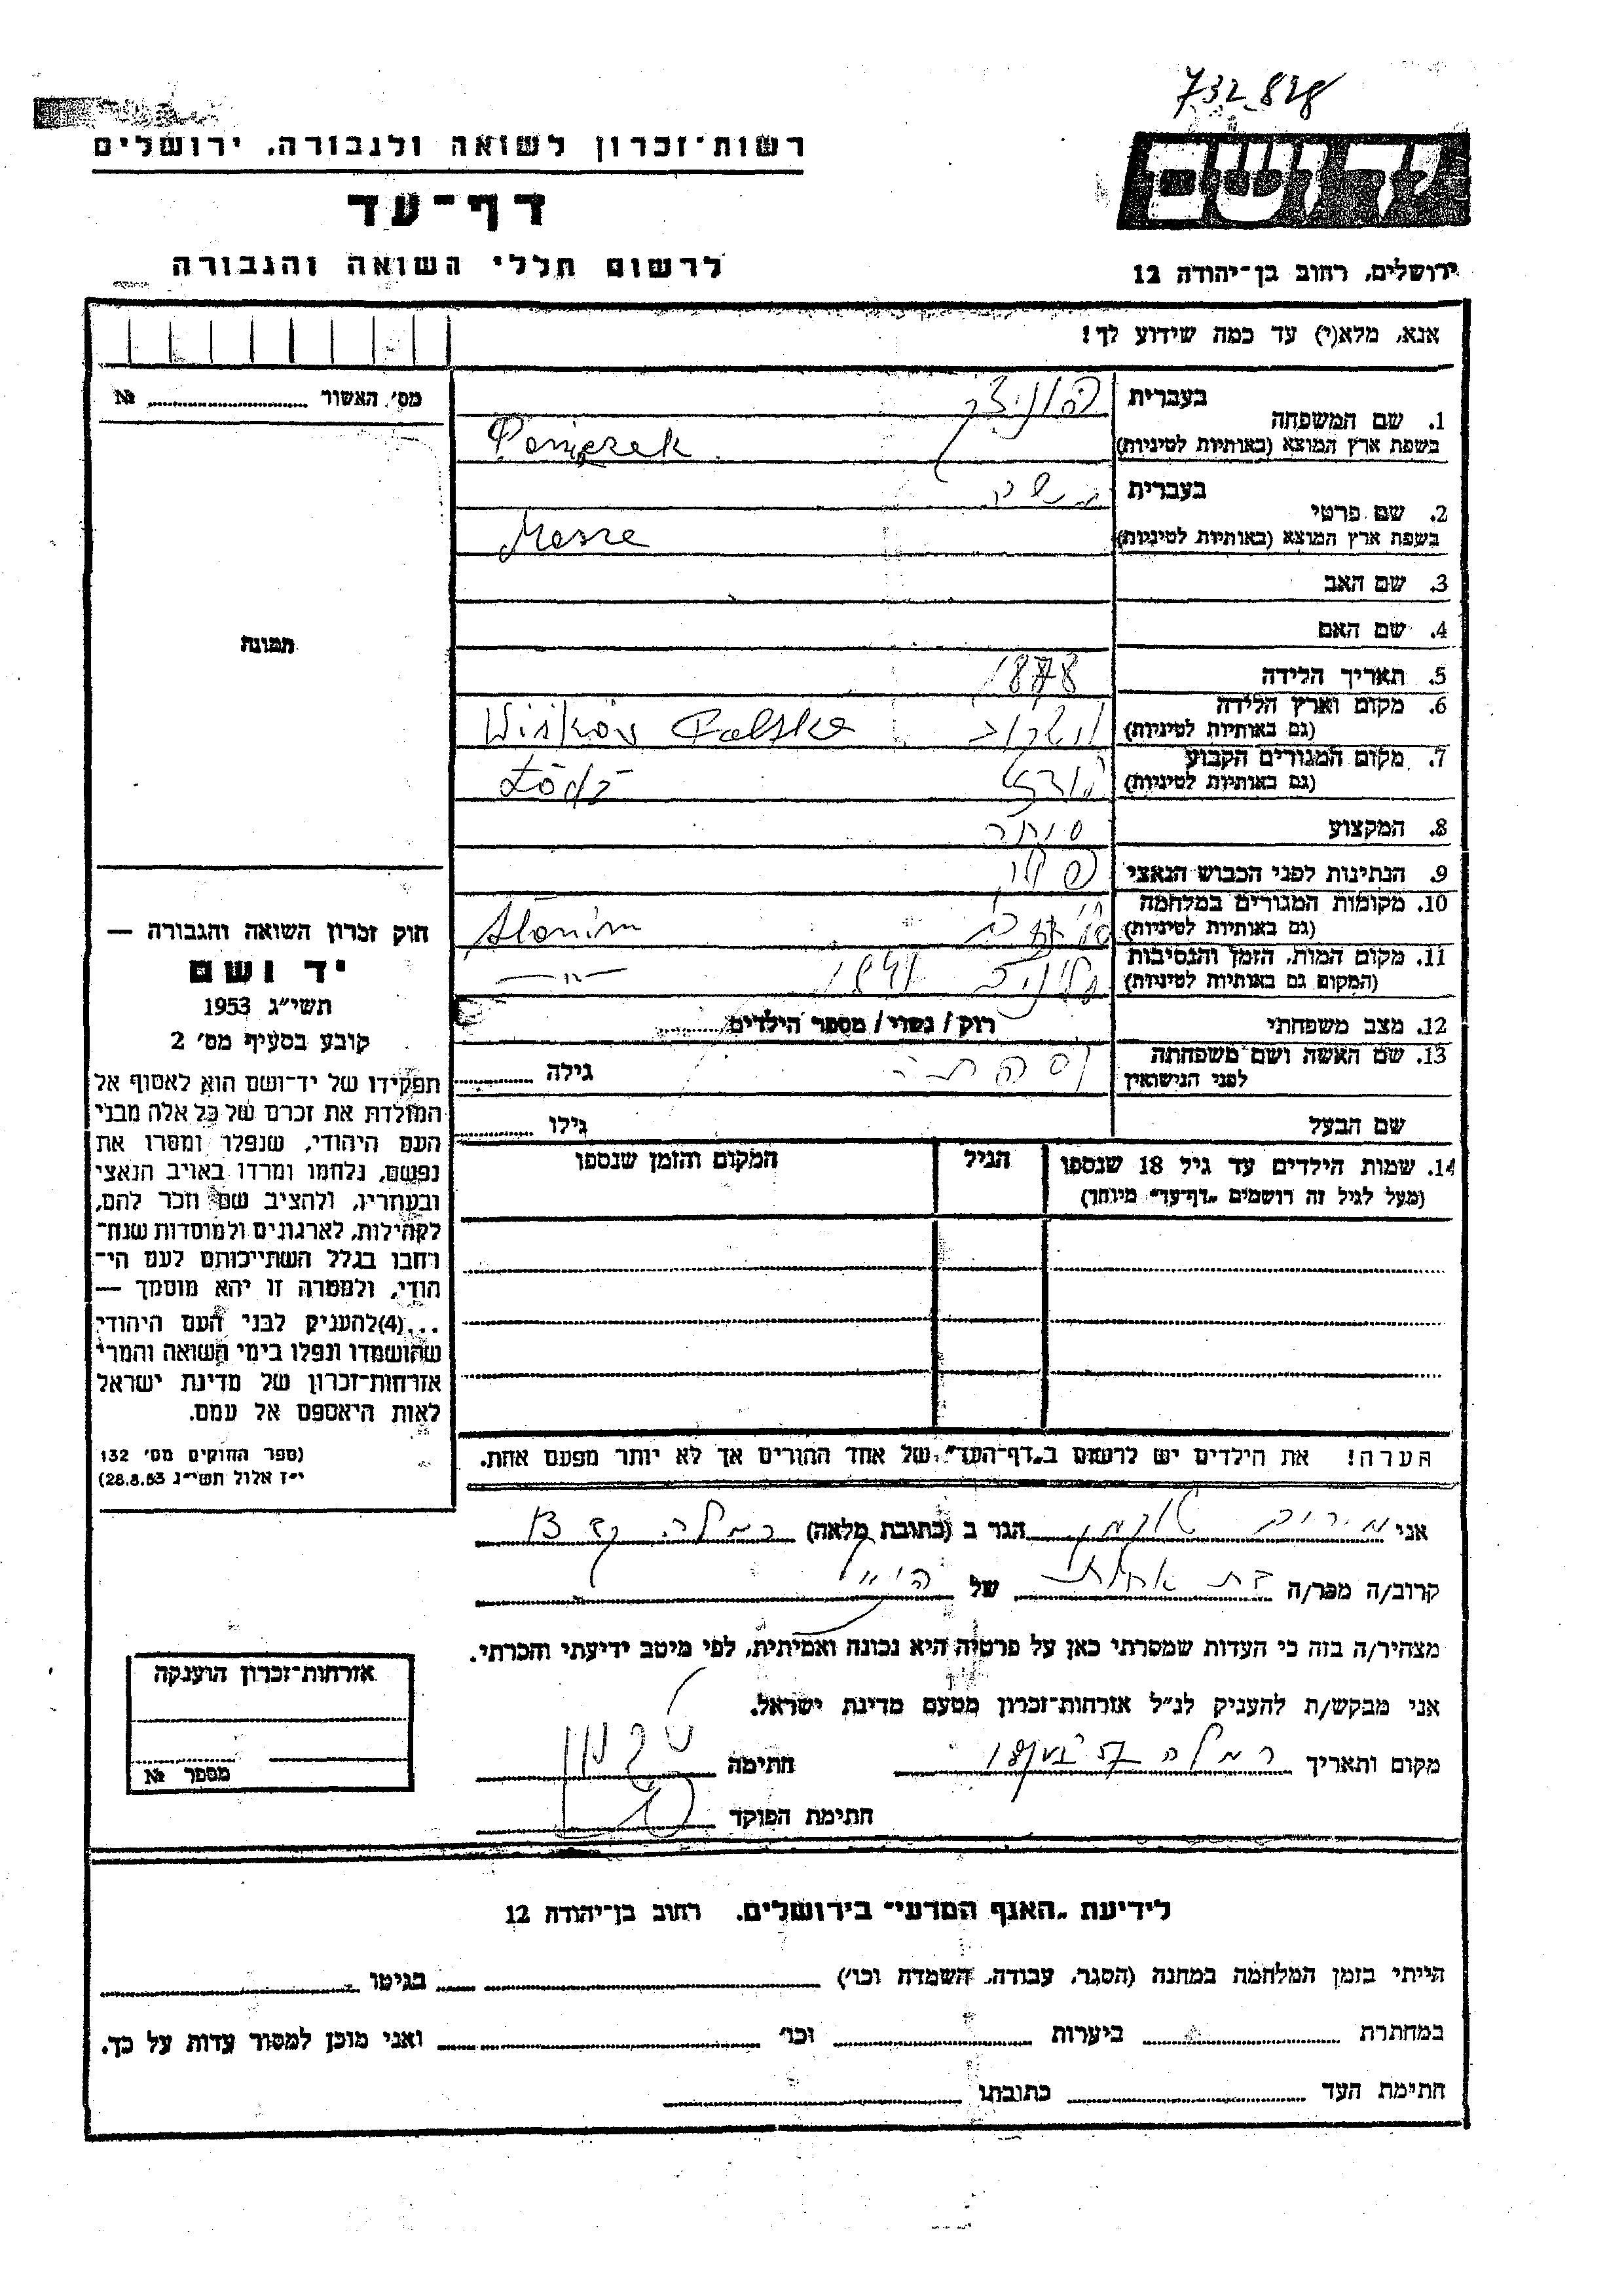 732828
רשות־זכרון לשואה ולגבורה, ירושלים
ידושם
דף־עד
לרשום חללי השואה והגבורה
ירושלים, רחוב בן־יהודה 12
אנא, מלא(י) עד כמה שידוע לך!
מס׳ האשור № 
1. שם המשפחה
בעברית
בשפת ארץ המוצא (באותיות לטיניות)
2. שם פרטי
בעברית משה
בשפת ארץ המוצא (באותיות לטיניות)
3. שם האב
4. שם האם
תמונה
5. תאריך הלידה 1878
6. מקום וארץ הלידה
(גם באותיות לטיניות) Polska
7. מקום המגורים הקבוע
(גם באותיות לטיניות) לודז Łódź
8. המקצוע סוחר
9. הנתינות לפני הכבוש הנאצי פולין
10. מקומות המגורים במלחמה
(גם באותיות לטיניות) סלונים Slonim
11. מקום המות, הזמן והנסיבות
(המקום גם באותיות לטיניות) סלונים 1941 —"—
12. מצב משפחתי רוק / נשוי / מספר הילדים
13. שם האשה ושם משפחתה
לפני הנישואין גילה
שם הבעל גילו
14. שמות הילדים עד גיל 18 שנספו
(מעל לגיל זה רושמים „דף־עד” מיוחד)
הגיל
המקום והזמן שנספו
חוק זכרון השואה והגבורה —
יד ושם
תשי״ג 1953
קובע בסעיף מס׳ 2
תפקידו של יד־ושם הוא לאסוף אל
המולדת את זכרם של כל אלה מבני
העם היהודי, שנפלו ומסרו את
נפשם, נלחמו ומרדו באויב הנאצי
ובעוזריו, ולהציב שם וזכר להם,
לקהילות, לארגונים ולמוסדות שנח־
רחבו בגלל השתייכותם לעם הי־
הודי, ולמטרה זו יהא מוסמך —
...(4)להעניק לבני העם היהודי
שהושמדו ונפלו בימי השואה והמרי
אזרחות־זכרון של מדינת ישראל
לאות היאספם אל עמם.
(ספר החוקים מס׳ 132
י״ז אלול תשי״ג 28.8.53)
הערה! את הילדים יש לרשום ב„דף־העד” של אחד ההורים אך לא יותר מפעם אחת.
אני מרים הגר ב (כתובת מלאה) רמלה
קרוב/ה מכר/ה בת אחות של הנ״ל
מצהיר/ה בזה כי העדות שמסרתי כאן על פרטיה היא נכונה ואמיתית, לפי מיטב ידיעתי והכרתי.
אני מבקש/ת להעניק לנ״ל אזרחות־זכרון מטעם מדינת ישראל.
מקום ותאריך רמלה חתימה
חתימת הפוקד
אזרחות־זכרון הוענקה
מספר №
לידיעת „האגף המדעי” בירושלים, רחוב בן־יהודה 12
הייתי בזמן המלחמה במחנה (הסגר, עבודה, השמדה וכו׳) בגיטו
במחתרת ביערות וכו׳ ואני מוכן למסור עדות על כך.
חתימת העד כתובתו